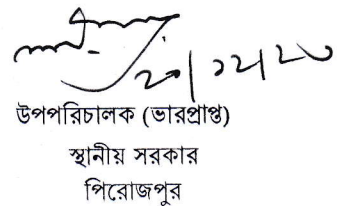 ২০/১২/২০
উপপরিচালক (ভারপ্রাপ্ত)
স্থানীয় সরকার
পিরোজপুর